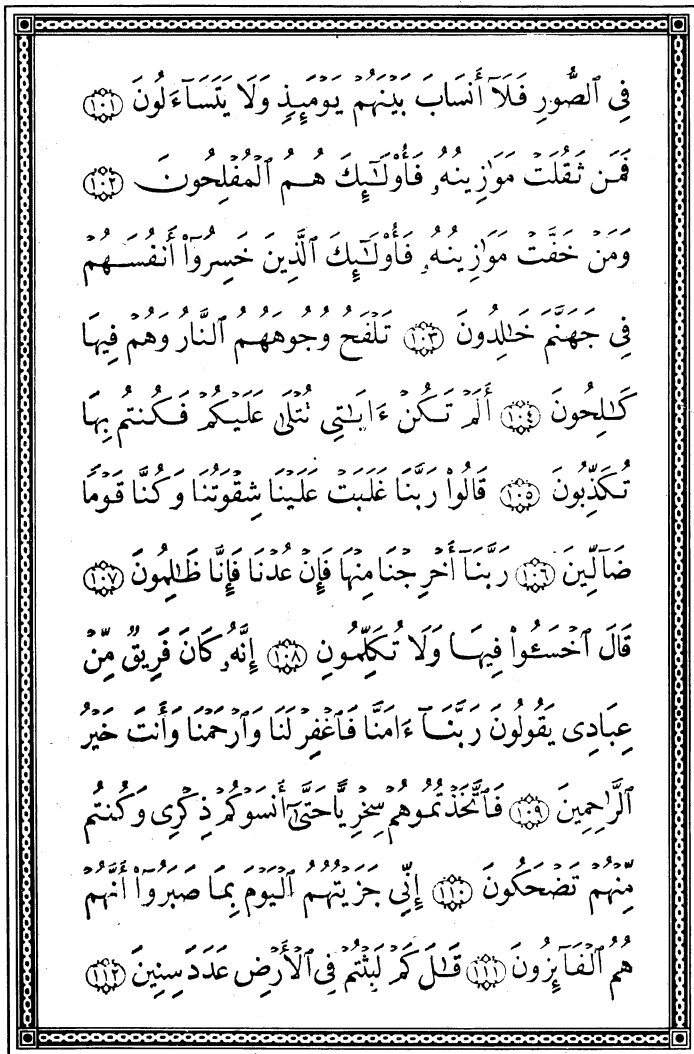 فِي ٱلصُّورِ فَلَآ أَنسَابَ بَيْنَهُمْ يَوْمَئِذٍ وَلَا يَتَسَآءَلُونَ ١٠١
فَمَن ثَقُلَتْ مَوَٰزِينُهُۥ فَأُوْلَٰٓئِكَ هُمُ ٱلْمُفْلِحُونَ ١٠٢
وَمَنْ خَفَّتْ مَوَٰزِينُهُۥ فَأُوْلَٰٓئِكَ ٱلَّذِينَ خَسِرُوٓاْ أَنفُسَهُمْ
فِي جَهَنَّمَ خَٰلِدُونَ ١٠٣ تَلْفَحُ وُجُوهَهُمُ ٱلنَّارُ وَهُمْ فِيهَا
كَٰلِحُونَ ١٠٤ أَلَمْ تَكُنْ ءَايَٰتِي تُتْلَىٰ عَلَيْكُمْ فَكُنتُم بِهَا
تُكَذِّبُونَ ١٠٥ قَالُواْ رَبَّنَا غَلَبَتْ عَلَيْنَا شِقْوَتُنَا وَكُنَّا قَوْمًا
ضَآلِّينَ ١٠٦ رَبَّنَآ أَخْرِجْنَا مِنْهَا فَإِنْ عُدْنَا فَإِنَّا ظَٰلِمُونَ ١٠٧
قَالَ ٱخْسَـُٔواْ فِيهَا وَلَا تُكَلِّمُونِ ١٠٨ إِنَّهُۥ كَانَ فَرِيقٌ مِّنْ
عِبَادِي يَقُولُونَ رَبَّنَآ ءَامَنَّا فَٱغْفِرْ لَنَا وَٱرْحَمْنَا وَأَنتَ خَيْرُ
ٱلرَّٰحِمِينَ ١٠٩ فَٱتَّخَذْتُمُوهُمْ سِخْرِيًّا حَتَّىٰٓ أَنسَوْكُمْ ذِكْرِي وَكُنتُم
مِّنْهُمْ تَضْحَكُونَ ١١٠ إِنِّي جَزَيْتُهُمُ ٱلْيَوْمَ بِمَا صَبَرُوٓاْ أَنَّهُمْ
هُمُ ٱلْفَآئِزُونَ ١١١ قَٰلَ كَمْ لَبِثْتُمْ فِي ٱلْأَرْضِ عَدَدَ سِنِينَ ١١٢